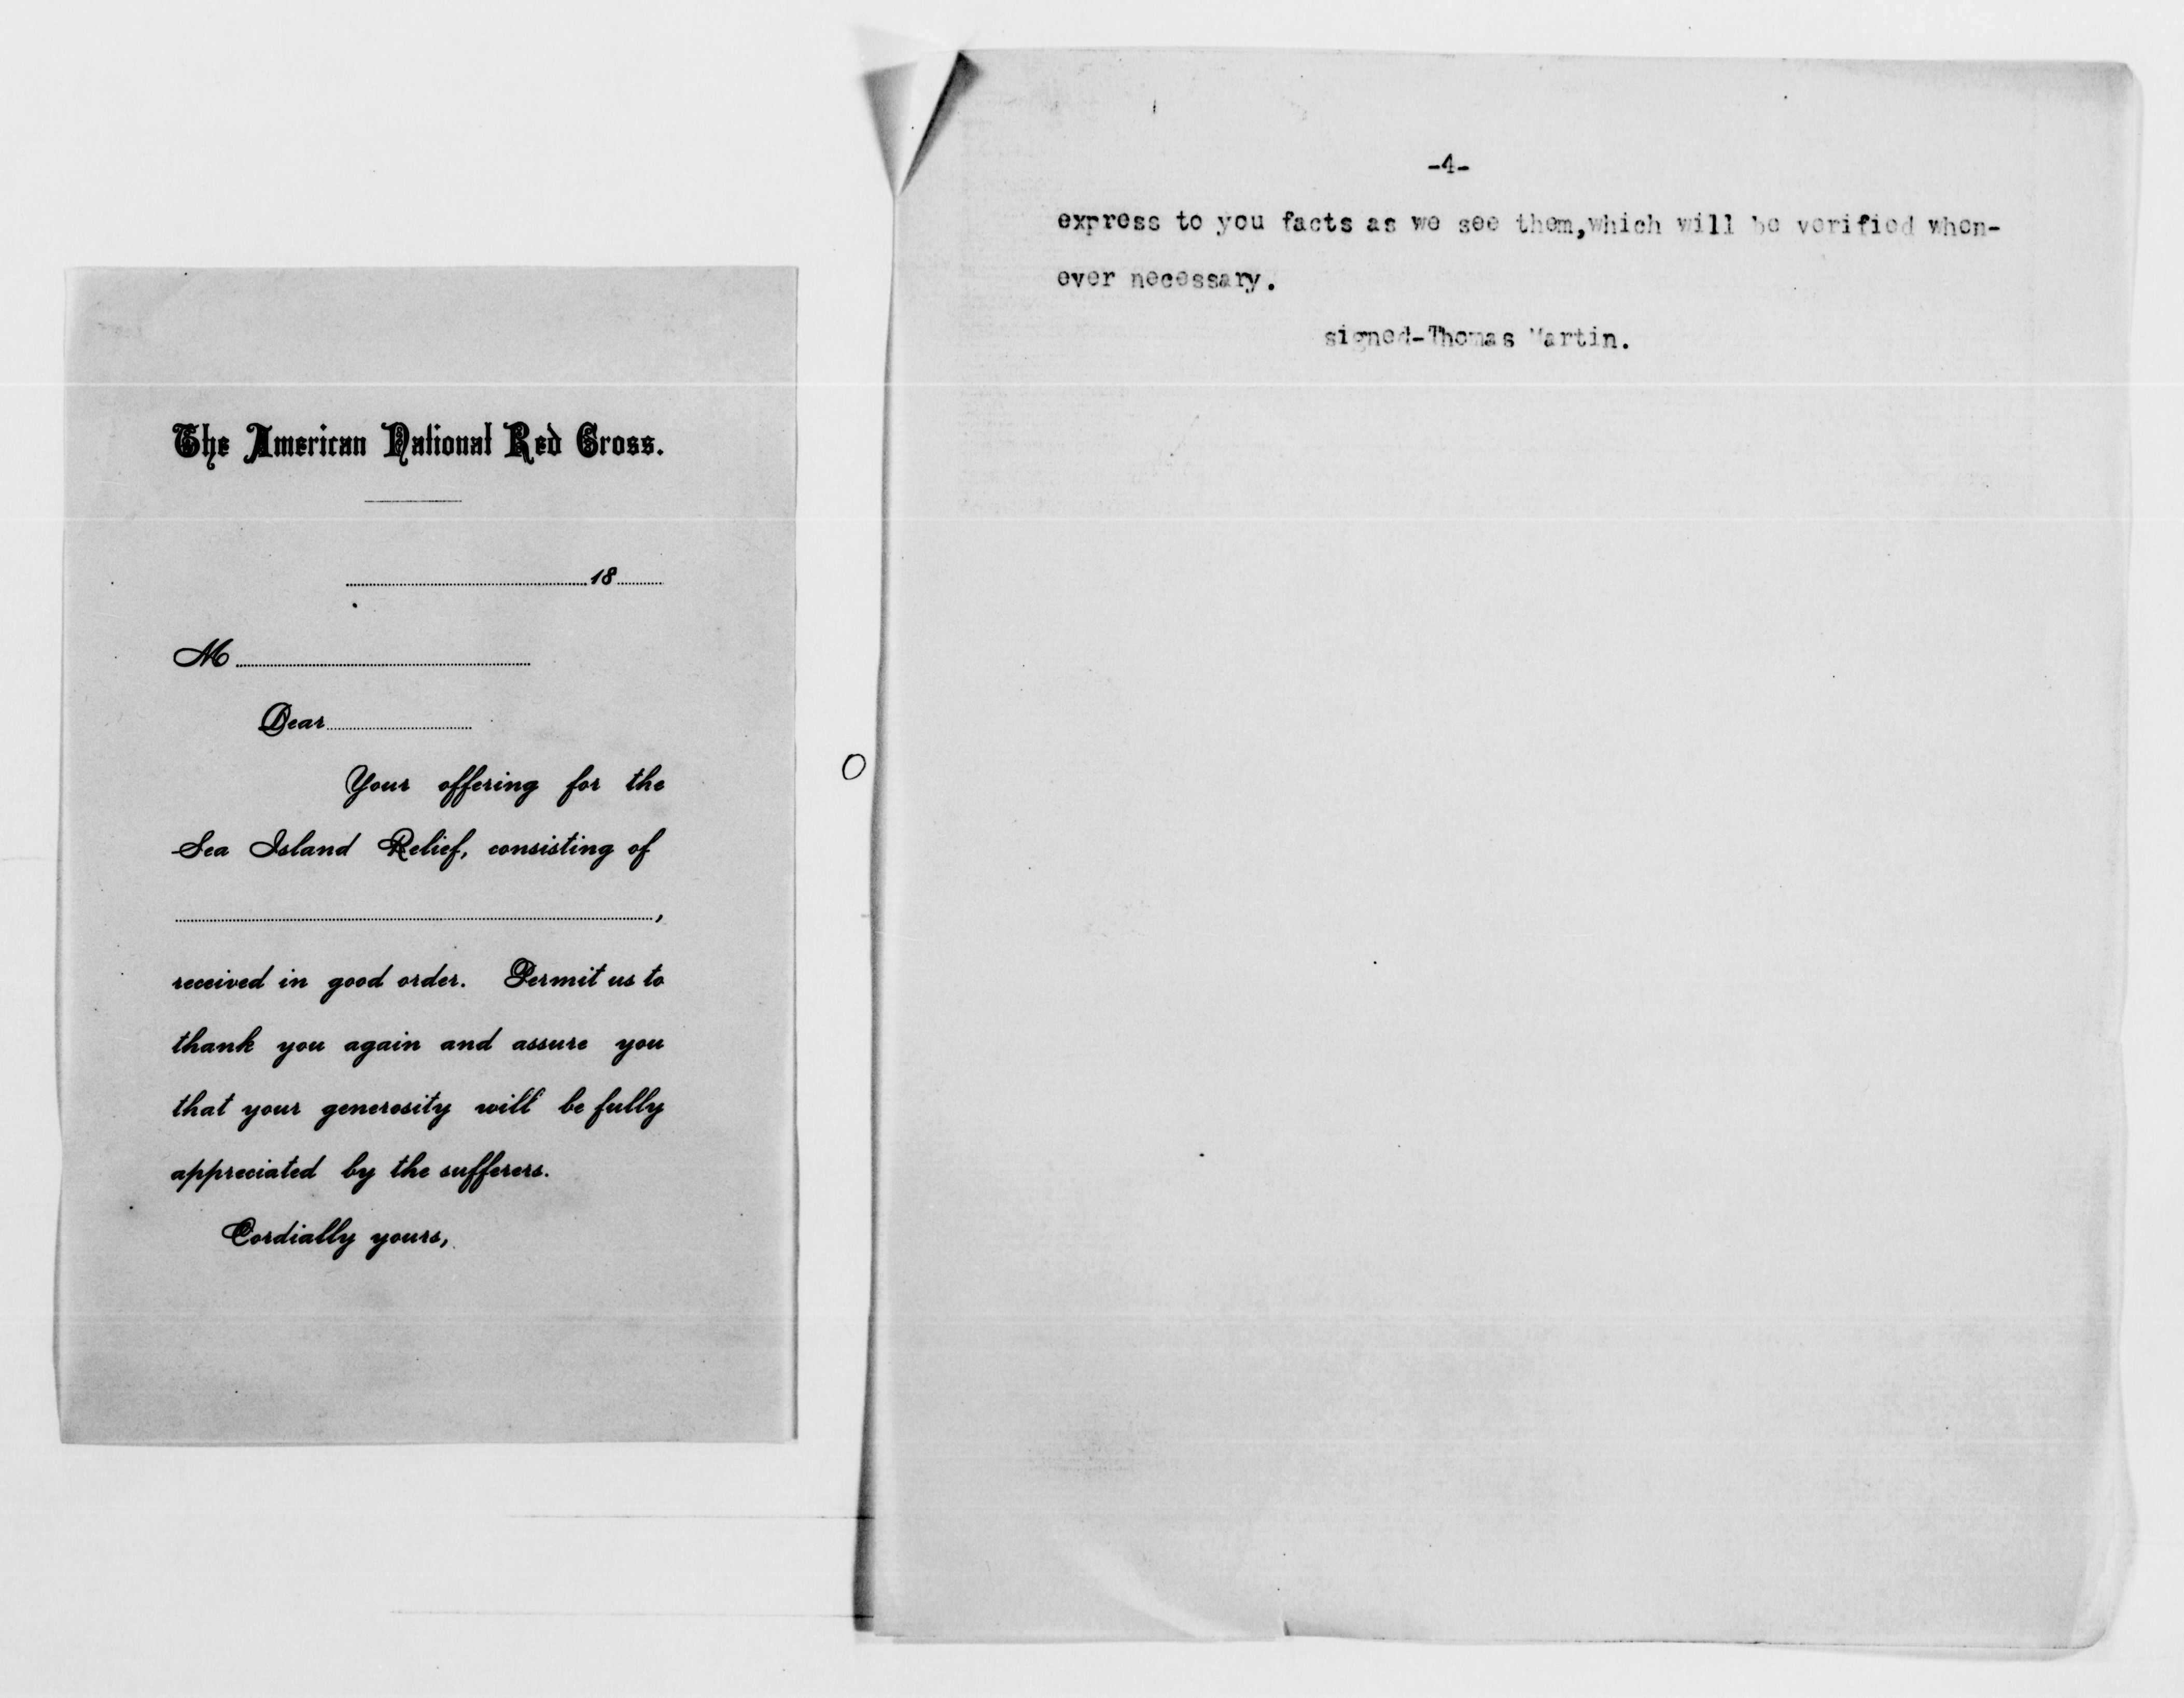 The American National Red Cross.
18
M
Dear
Your offering for the
Sea Island Relief, consisting of
,
received in good order. Permit us to
thank you again and assure you
that your generosity will be fully
appreciated by the sufferers.
Cordially yours,
-4-
express to you facts as we see them,which will be verified when-
ever necessary.
signed-Thomas Martin.